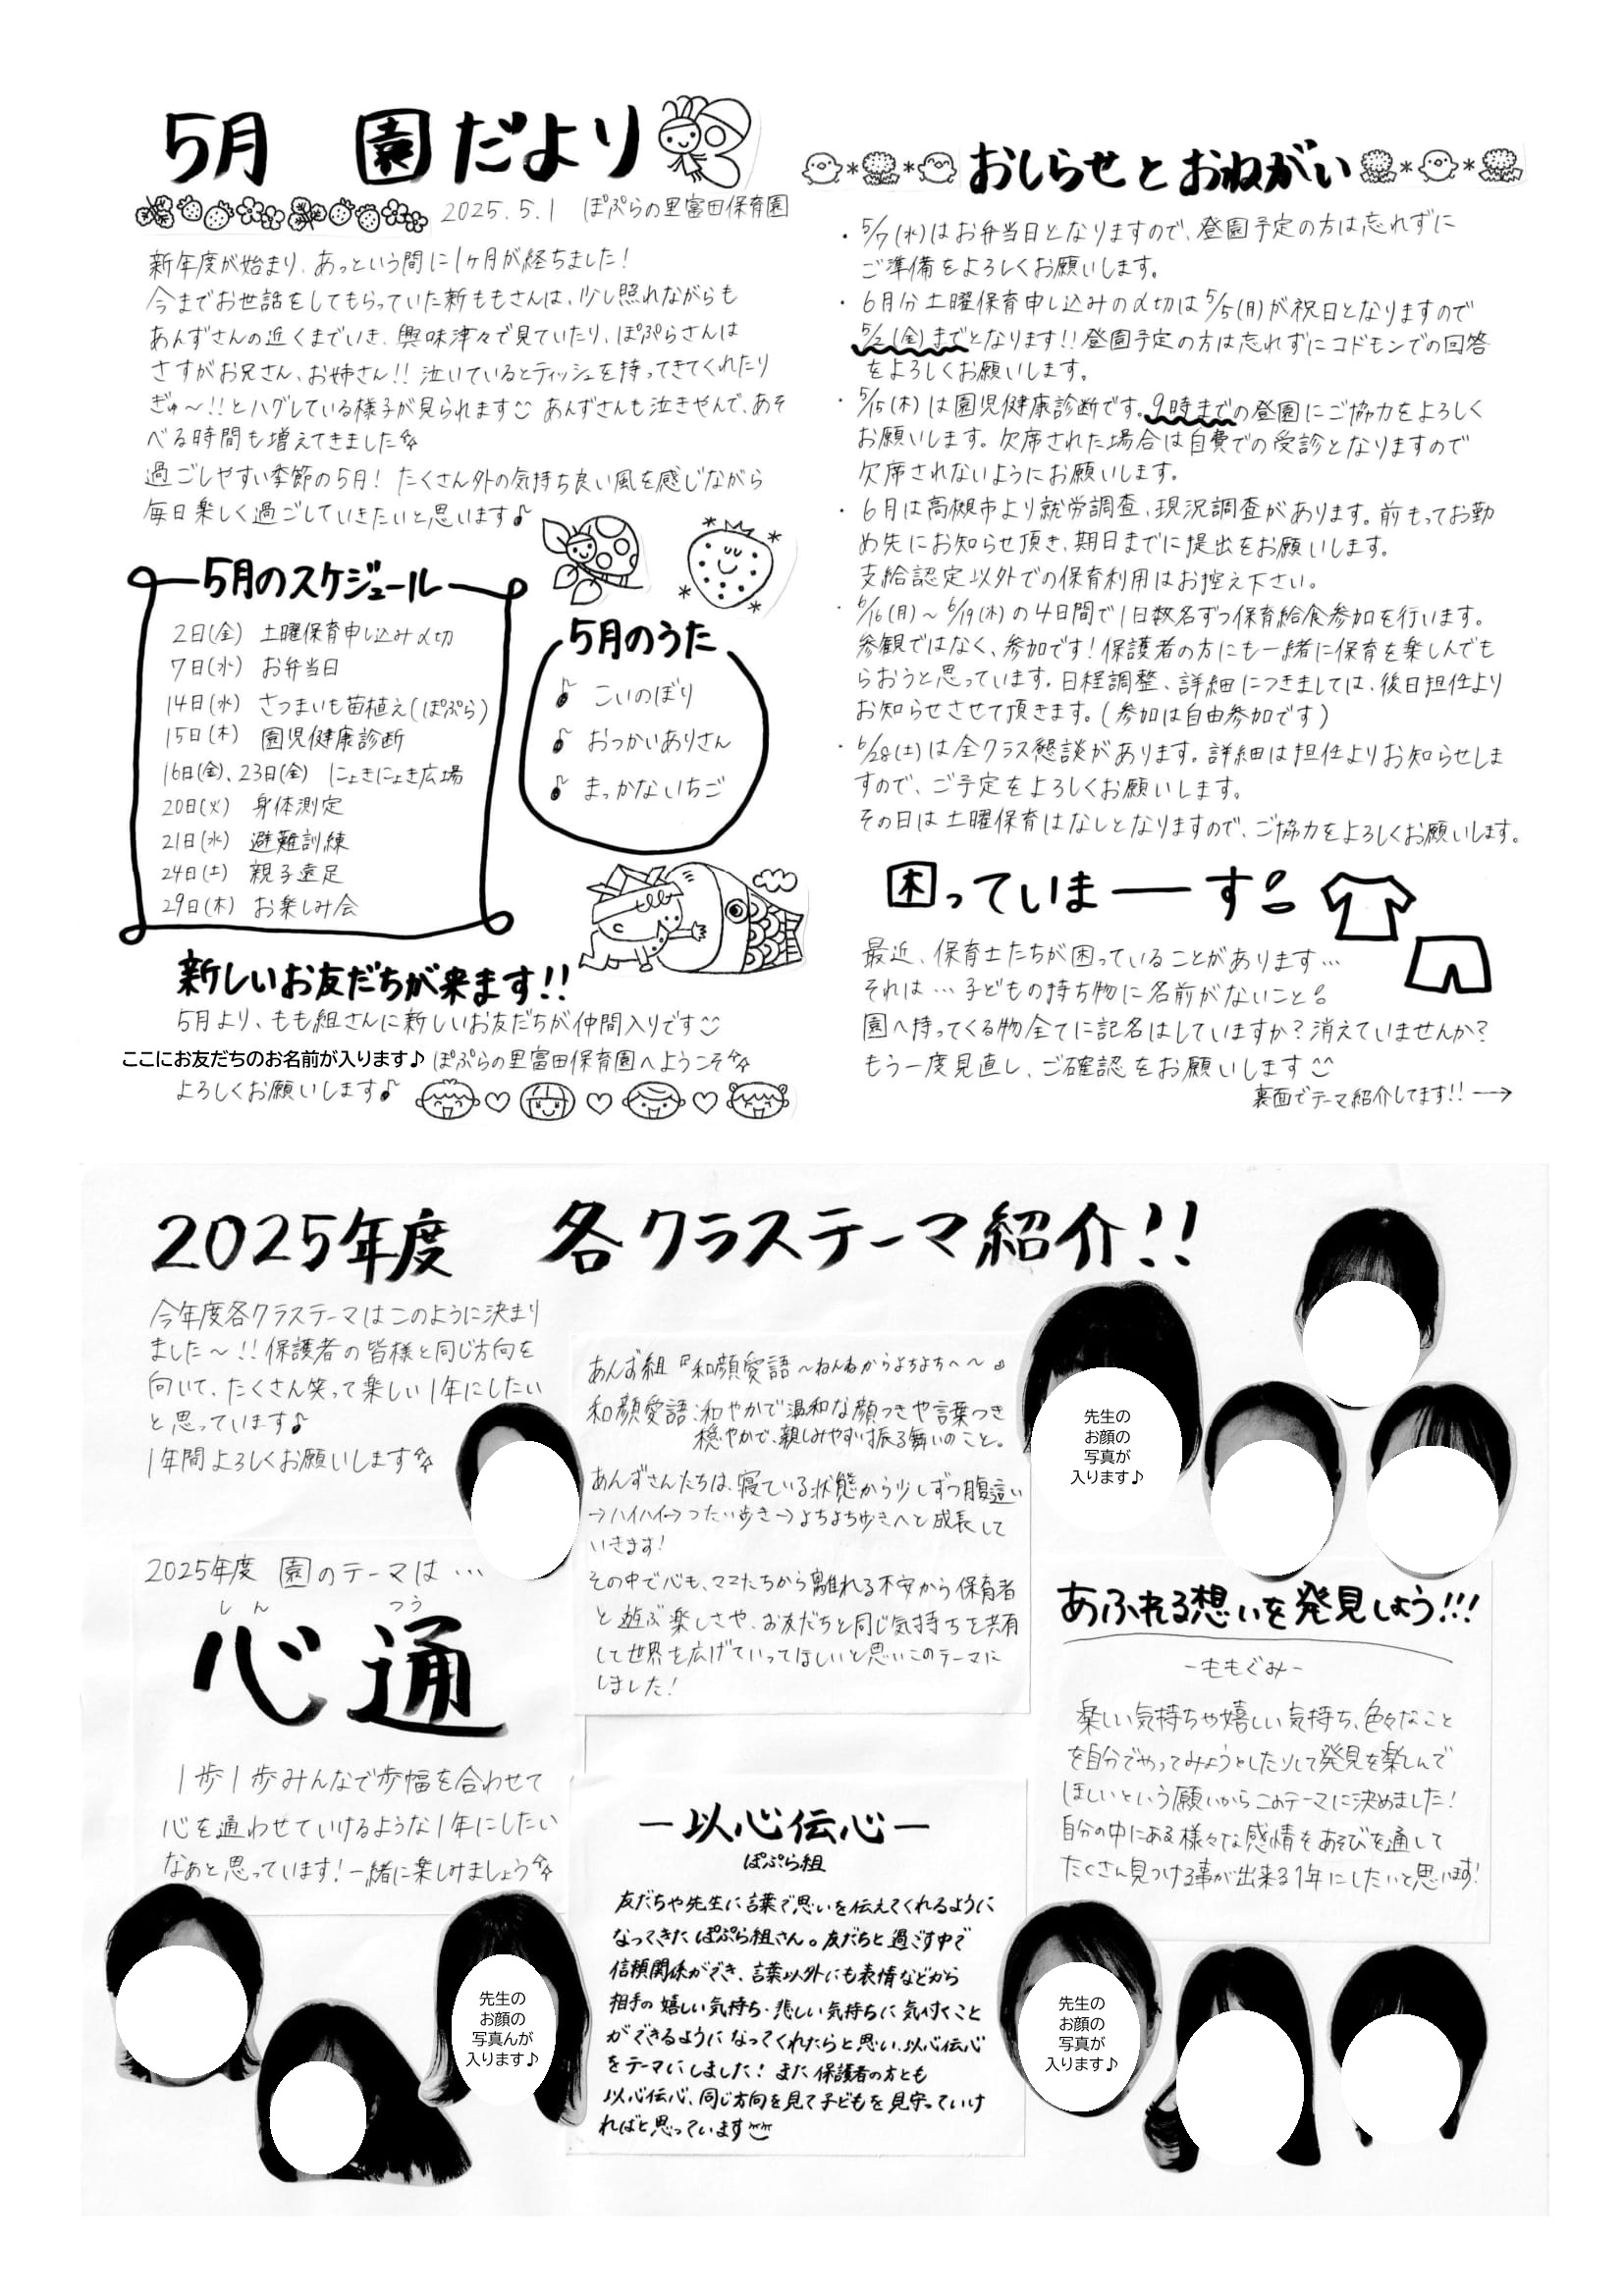 5月 園だより
2025.5.1 ぽぷらの里富田保育園
新年度が始まり、あっという間に1ヶ月が経ちました！
今までお世話をしてもらっていた新ももさんは、少し照れながらも
あんずさんの近くまでいき、興味津々で見ていたり、ぽぷらさんは
さすがお兄さん、お姉さん!! 泣いているとティッシュを持ってきてくれたり
ぎゅ〜!!とハグしている様子が見られます あんずさんも泣きやんで、あそ
べる時間も増えてきました
過ごしやすい季節の5月！ たくさん外の気持ち良い風を感じながら
毎日楽しく過ごしていきたいと思います♪
5月のスケジュール
2日(金) 土曜保育申し込み〆切
7日(水) お弁当日
14日(水) さつまいも苗植え(ぽぷら)
15日(木) 園児健康診断
16日(金)、23日(金) にょきにょき広場
20日(火) 身体測定
21日(水) 避難訓練
24日(土) 親子遠足
29日(木) お楽しみ会
5月のうた
♪ こいのぼり
♪ おつかいありさん
♪ まっかないちご
新しいお友だちが来ます!!
5月より、もも組さんに新しいお友だちが仲間入りです
ここにお友だちのお名前が入ります♪ ぽぷらの里富田保育園へようこそ
よろしくお願いします♪
おしらせとおねがい
・5/7(水)はお弁当日となりますので、登園予定の方は忘れずに
ご準備をよろしくお願いします。
・6月分土曜保育申し込みの〆切は5/5(月)が祝日となりますので
5/2(金)までとなります!! 登園予定の方は忘れずにコドモンでの回答
をよろしくお願いします。
・5/15(木)は園児健康診断です。9時までの登園にご協力をよろしく
お願いします。欠席された場合は自費での受診となりますので
欠席されないようにお願いします。
・6月は高槻市より就労調査、現況調査があります。前もってお勤
め先にお知らせ頂き、期日までに提出をお願いします。
支給認定以外での保育利用はお控え下さい。
・6/16(月)〜6/19(木)の4日間で1日数名ずつ保育給食参加を行います。
参観ではなく、参加です！保護者の方にも一緒に保育を楽しんでも
らおうと思っています。日程調整、詳細につきましては、後日担任より
お知らせさせて頂きます。(参加は自由参加です)
・6/28(土)は全クラス懇談があります。詳細は担任よりお知らせしま
すので、ご予定をよろしくお願いします。
その日は土曜保育はなしとなりますので、ご協力をよろしくお願いします。
困っていまーす
最近、保育士たちが困っていることがあります…
それは…子どもの持ち物に名前がないこと
園へ持ってくる物全てに記名はしていますか？消えていませんか？
もう一度見直し、ご確認をお願いします
裏面でテーマ紹介してます!! →
2025年度 各クラステーマ紹介!!
今年度各クラステーマはこのように決まり
ました〜!!保護者の皆様と同じ方向を
向いて、たくさん笑って楽しい1年にしたい
と思っています♪
1年間よろしくお願いします
2025年度 園のテーマは…
しん つう
心通
1歩1歩みんなで歩幅を合わせて
心を通わせていけるような1年にしたい
なぁと思っています！一緒に楽しみましょう
あんず組『和顔愛語〜ねんねからよちよちへ〜』
和顔愛語:和やかで温和な顔つきや言葉つき
穏やかで、親しみやすい振る舞いのこと。
あんずさんたちは、寝ている状態から少しずつ腹這い
→ハイハイ→つたい歩き→よちよち歩きへと成長して
いきます！
その中で心も、ママたちから離れる不安から保育者
と遊ぶ楽しさや、お友だちと同じ気持ちを共有
して世界を広げていってほしいと思いこのテーマに
しました！
ー以心伝心ー
ぽぷら組
友だちや先生に言葉で思いを伝えてくれるように
なってきたぽぷら組さん。友だちと過ごす中で
信頼関係ができ、言葉以外にも表情などから
相手の嬉しい気持ち・悲しい気持ちに気付くこと
ができるようになってくれたらと思い、以心伝心
をテーマにしました！また保護者の方とも
以心伝心、同じ方向を見て子どもを見守っていけ
ればと思っています
先生の
お顔の
写真が
入ります♪
あふれる想いを発見しよう!!!
-ももぐみ-
楽しい気持ちや嬉しい気持ち、色々なこと
を自分でやってみようとしたりして発見を楽しんで
ほしいという願いからこのテーマに決めました！
自分の中にある様々な感情をあそびを通して
たくさん見つける事が出来る1年にしたいと思います！
先生の
お顔の
写真んが
入ります♪
先生の
お顔の
写真が
入ります♪